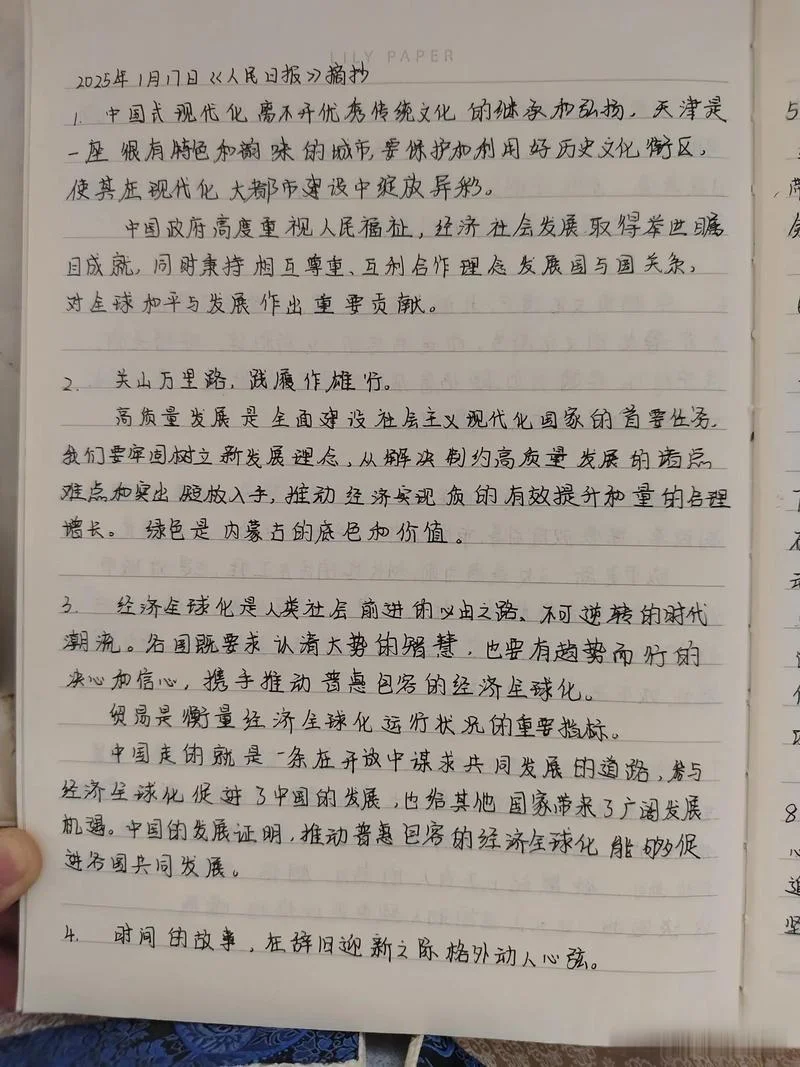 LILY PAPER
2025年1月17日《人民日报》摘抄
1. 中国式现代化离不开优秀传统文化的继承和弘扬,天津是
一座很有特色和韵味的城市,要保护和利用好历史文化街区,
使其在现代化大都市建设中绽放异彩。
中国政府高度重视人民福祉,经济社会发展取得举世瞩
目成就,同时秉持相互尊重、互利合作理念发展国与国关系,
对全球和平与发展作出重要贡献。
2. 关山万里路,践履作雄行。
高质量发展是全面建设社会主义现代化国家的首要任务,
我们要牢固树立新发展理念,从解决制约高质量发展的堵点
难点和突出短放入手,推动经济实现质的有效提升和量的合理
增长。绿色是内蒙古的底色和价值。
3. 经济全球化是人类社会前进的必由之路、不可逆转的时代
潮流。各国既要求认清大势的智慧,也要有趋势而行的
决心和信心,携手推动普惠包容的经济全球化。
贸易是衡量经济全球化运行状况的重要指标。
中国走的就是一条在开放中谋求共同发展的道路,参与
经济全球化促进了中国的发展,也给其他国家带来了广阔发展
机遇。中国的发展证明,推动普惠包容的经济全球化能够促
进各国共同发展。
4. 时间的故事,在辞旧迎新之际格外动人心弦。